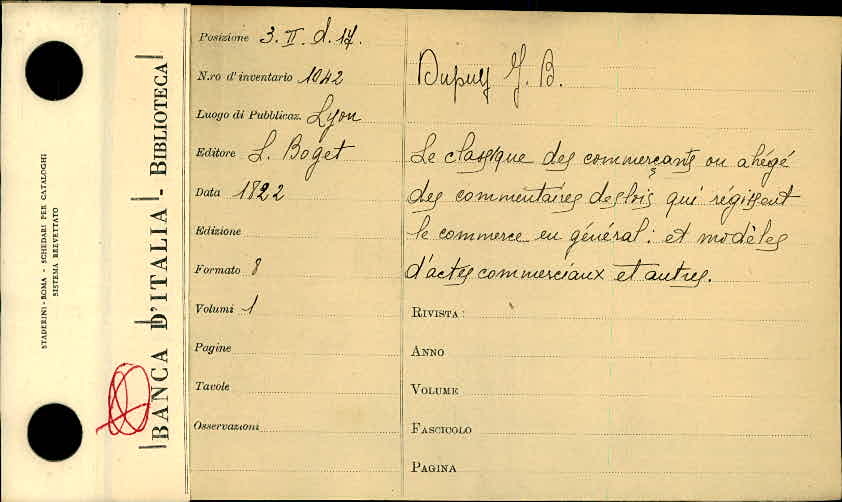 STADERINI - ROMA - SCHEDARI PER CATALOGHI
SISTEMA BREVETTATO
BANCA D'ITALIA - BIBLIOTECA
Posizione 3. II. d. 17.
N.ro d'inventario 1042
Luogo di Pubblicaz. Lyon
Editore L. Boget
Data 1822
Edizione
Formato 8
Volumi 1
Pagine
Tavole
Osservazioni
Dupuy J. B.
Le classique des commerçants ou abégé
des commentaires des lois qui régissent
le commerce en général: et modèles
d'actes commerciaux et autres.
RIVISTA:
ANNO
VOLUME
FASCICOLO
PAGINA